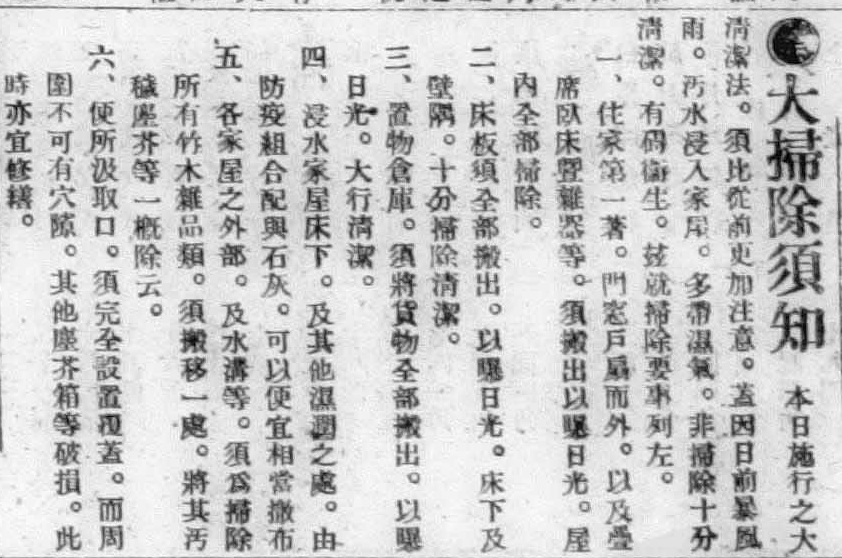 大掃除須知 本日施行之大
清潔法。須比從前更加注意。蓋因日前暴風
雨。汚水浸入家屋。多帶濕氣。非掃除十分
清潔。有碍衛生。玆就掃除要事列左。
一、住家第一著。門窓戶扇而外。以及疊
席臥床豐雜器等。須搬出以曝日光。屋
內全部掃除。
二、床板須全部搬出。以曝日光。床下及
壁隅。十分掃除清潔。
三、置物倉庫。須將貨物全部搬出。以曝
日光。大行清潔。
四、浸水家屋床下。及其他濕潤之處。由
防疫組合配與石灰。可以便宜相當撒布
五、各家屋之外部。及水溝等。須爲掃除
所有竹木雜品類。須搬移一處。將其汚
穢塵芥等一概除云。
六、便所汲取口。須完全設置覆蓋。而周
圍不可有穴隙。其他塵芥箱等破損。此
時亦宜修繕。